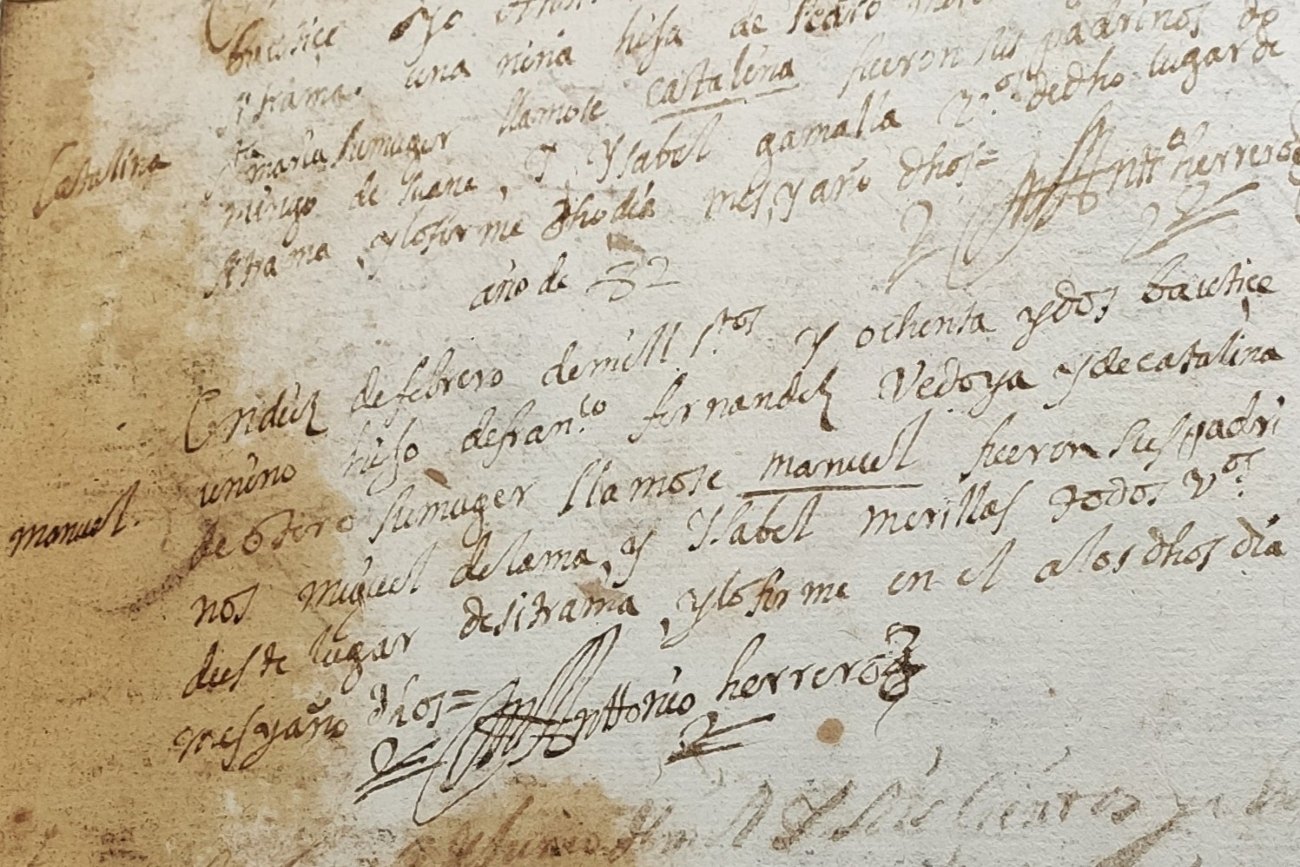 bautiçe
una niña hija de Pedro
Catalina
maria su muger llamose catalina fueron sus padrinos do
mingo de Juana, y Ysabel gamalla vº.s de dho lugar de
sitrama y lo firme dho dia mes, y año dhos= Antt.º herrero
año de 82
En diez de febrero de mill s.tos y ochenta y dos bautiçe
un nino hijo de fran.co fernandez Vedoya y de catalina
manuel.
de otero su muger llamose manuel fueron sus padri
nos miguel de lama, y Ysabel merillas todos vº.s
de este lugar de sitrama, y lo firme en el a los dhos dia
mes y año dhos= Anttonio herrero